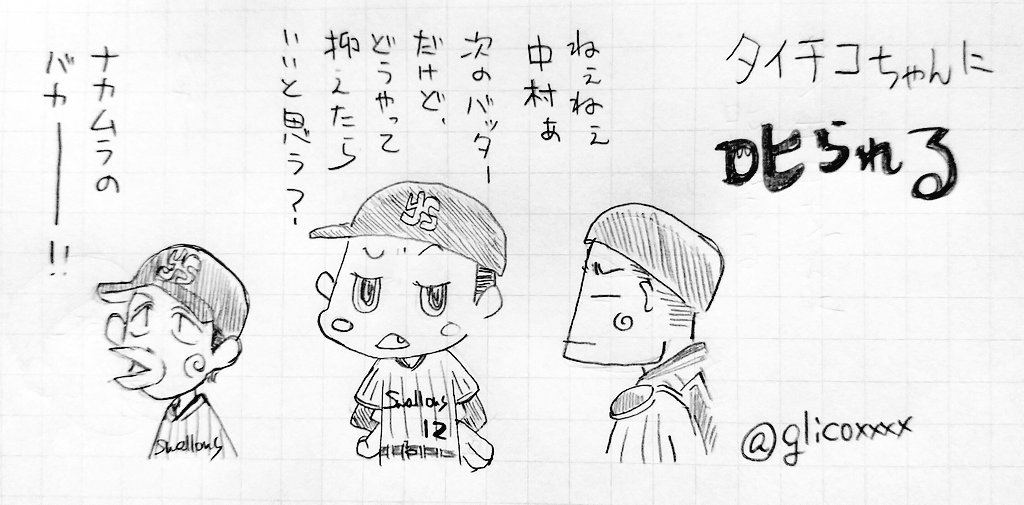 タイチコちゃんに
叱られる
ねぇねぇ
中村ぁ
次のバッター
だけど、
どうやって
抑えたら
いいと思う?
ナカムラの
バカー!!
YS
YS
Swallows
12
Swallows
@glicoxxxx